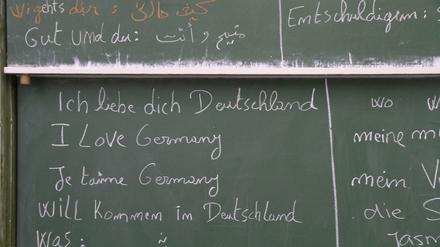 Wi gehts der : كيف حالك
Gut und du: منيح و أنت
Entschuldigem:
Ich liebe dich Deutschland
I Love Germany
Je taime Germany
Will Kommen im Deutschland
Was :
wo
meine
mein
die
Jasm